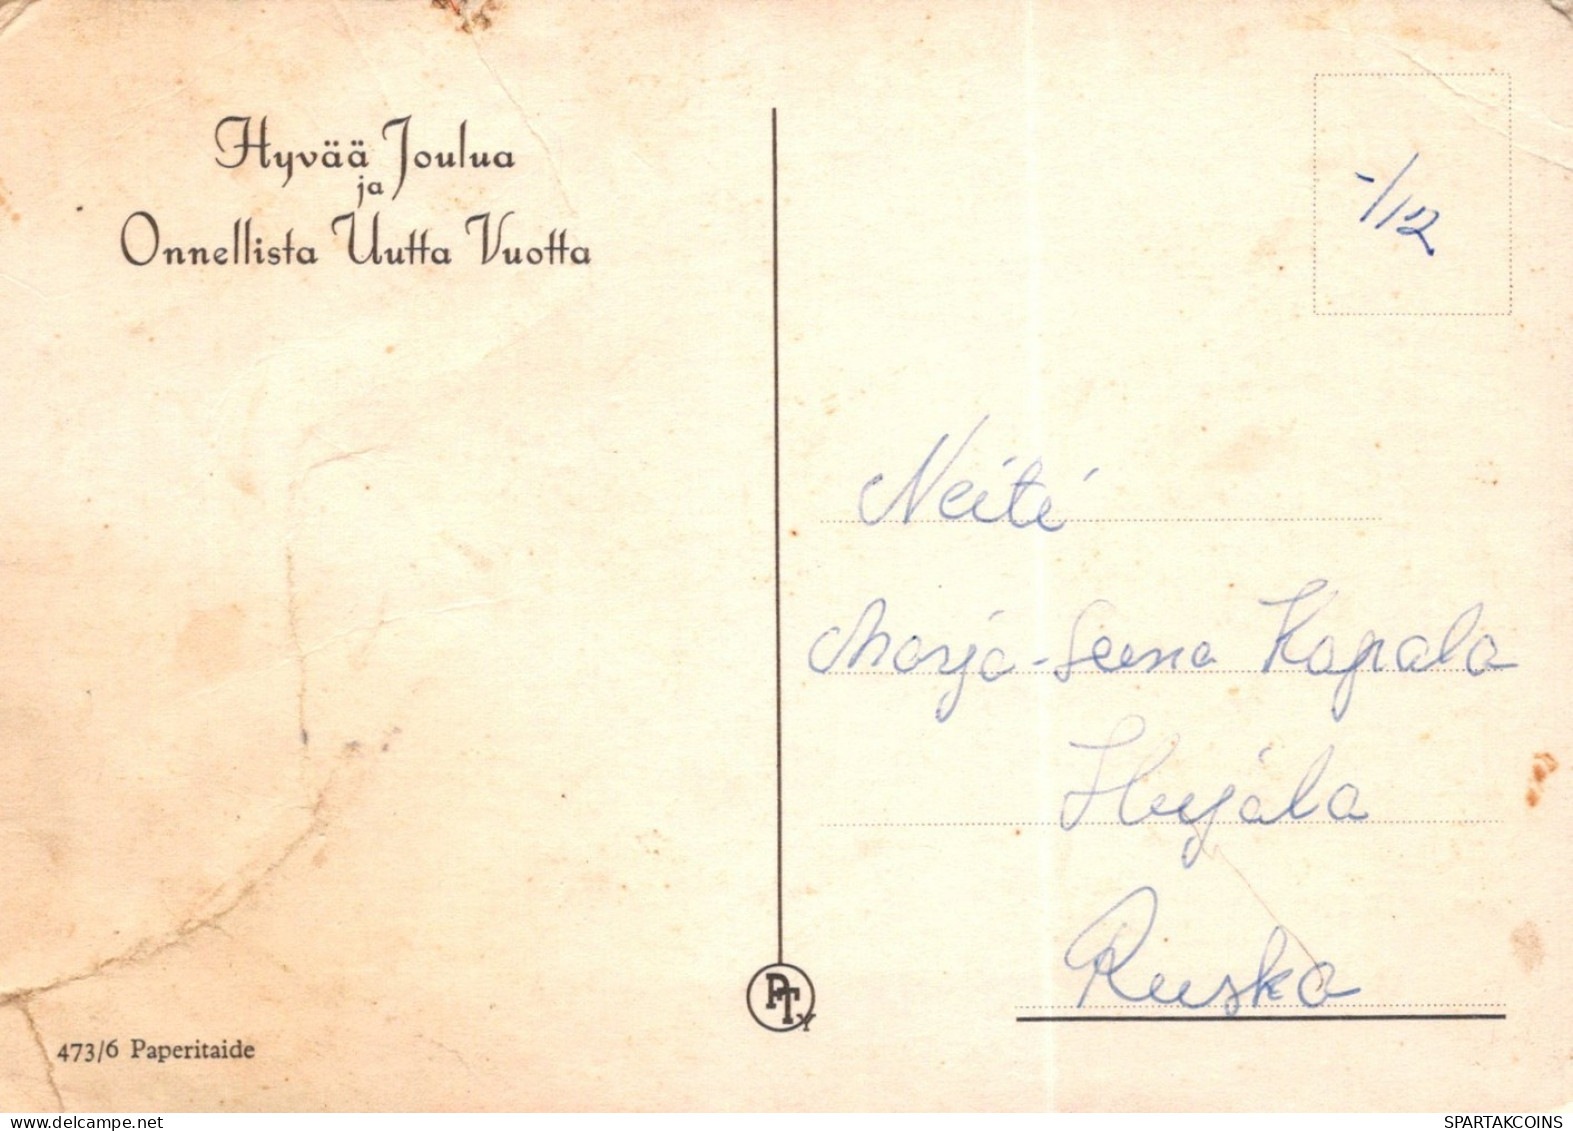 Hyvää Joulua
ja
Onnellista Uutta Vuotta
-/12
Neiti
Marja-Leena Kapala
Hujala
Ruska
PTy
473/6 Paperitaide
www.delcampe.net
SPARTAKCOINS